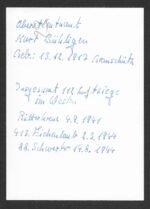 Oberstleutnant
Kurt Bühligen
Geb: 13.12.1917 Granschütz
Insgesamt 112 Luftsiege
im Westen
Ritterkreuz 4.9.1941
413. Eichenlaub 2.3.1944
88. Schwerter 14.8.1944